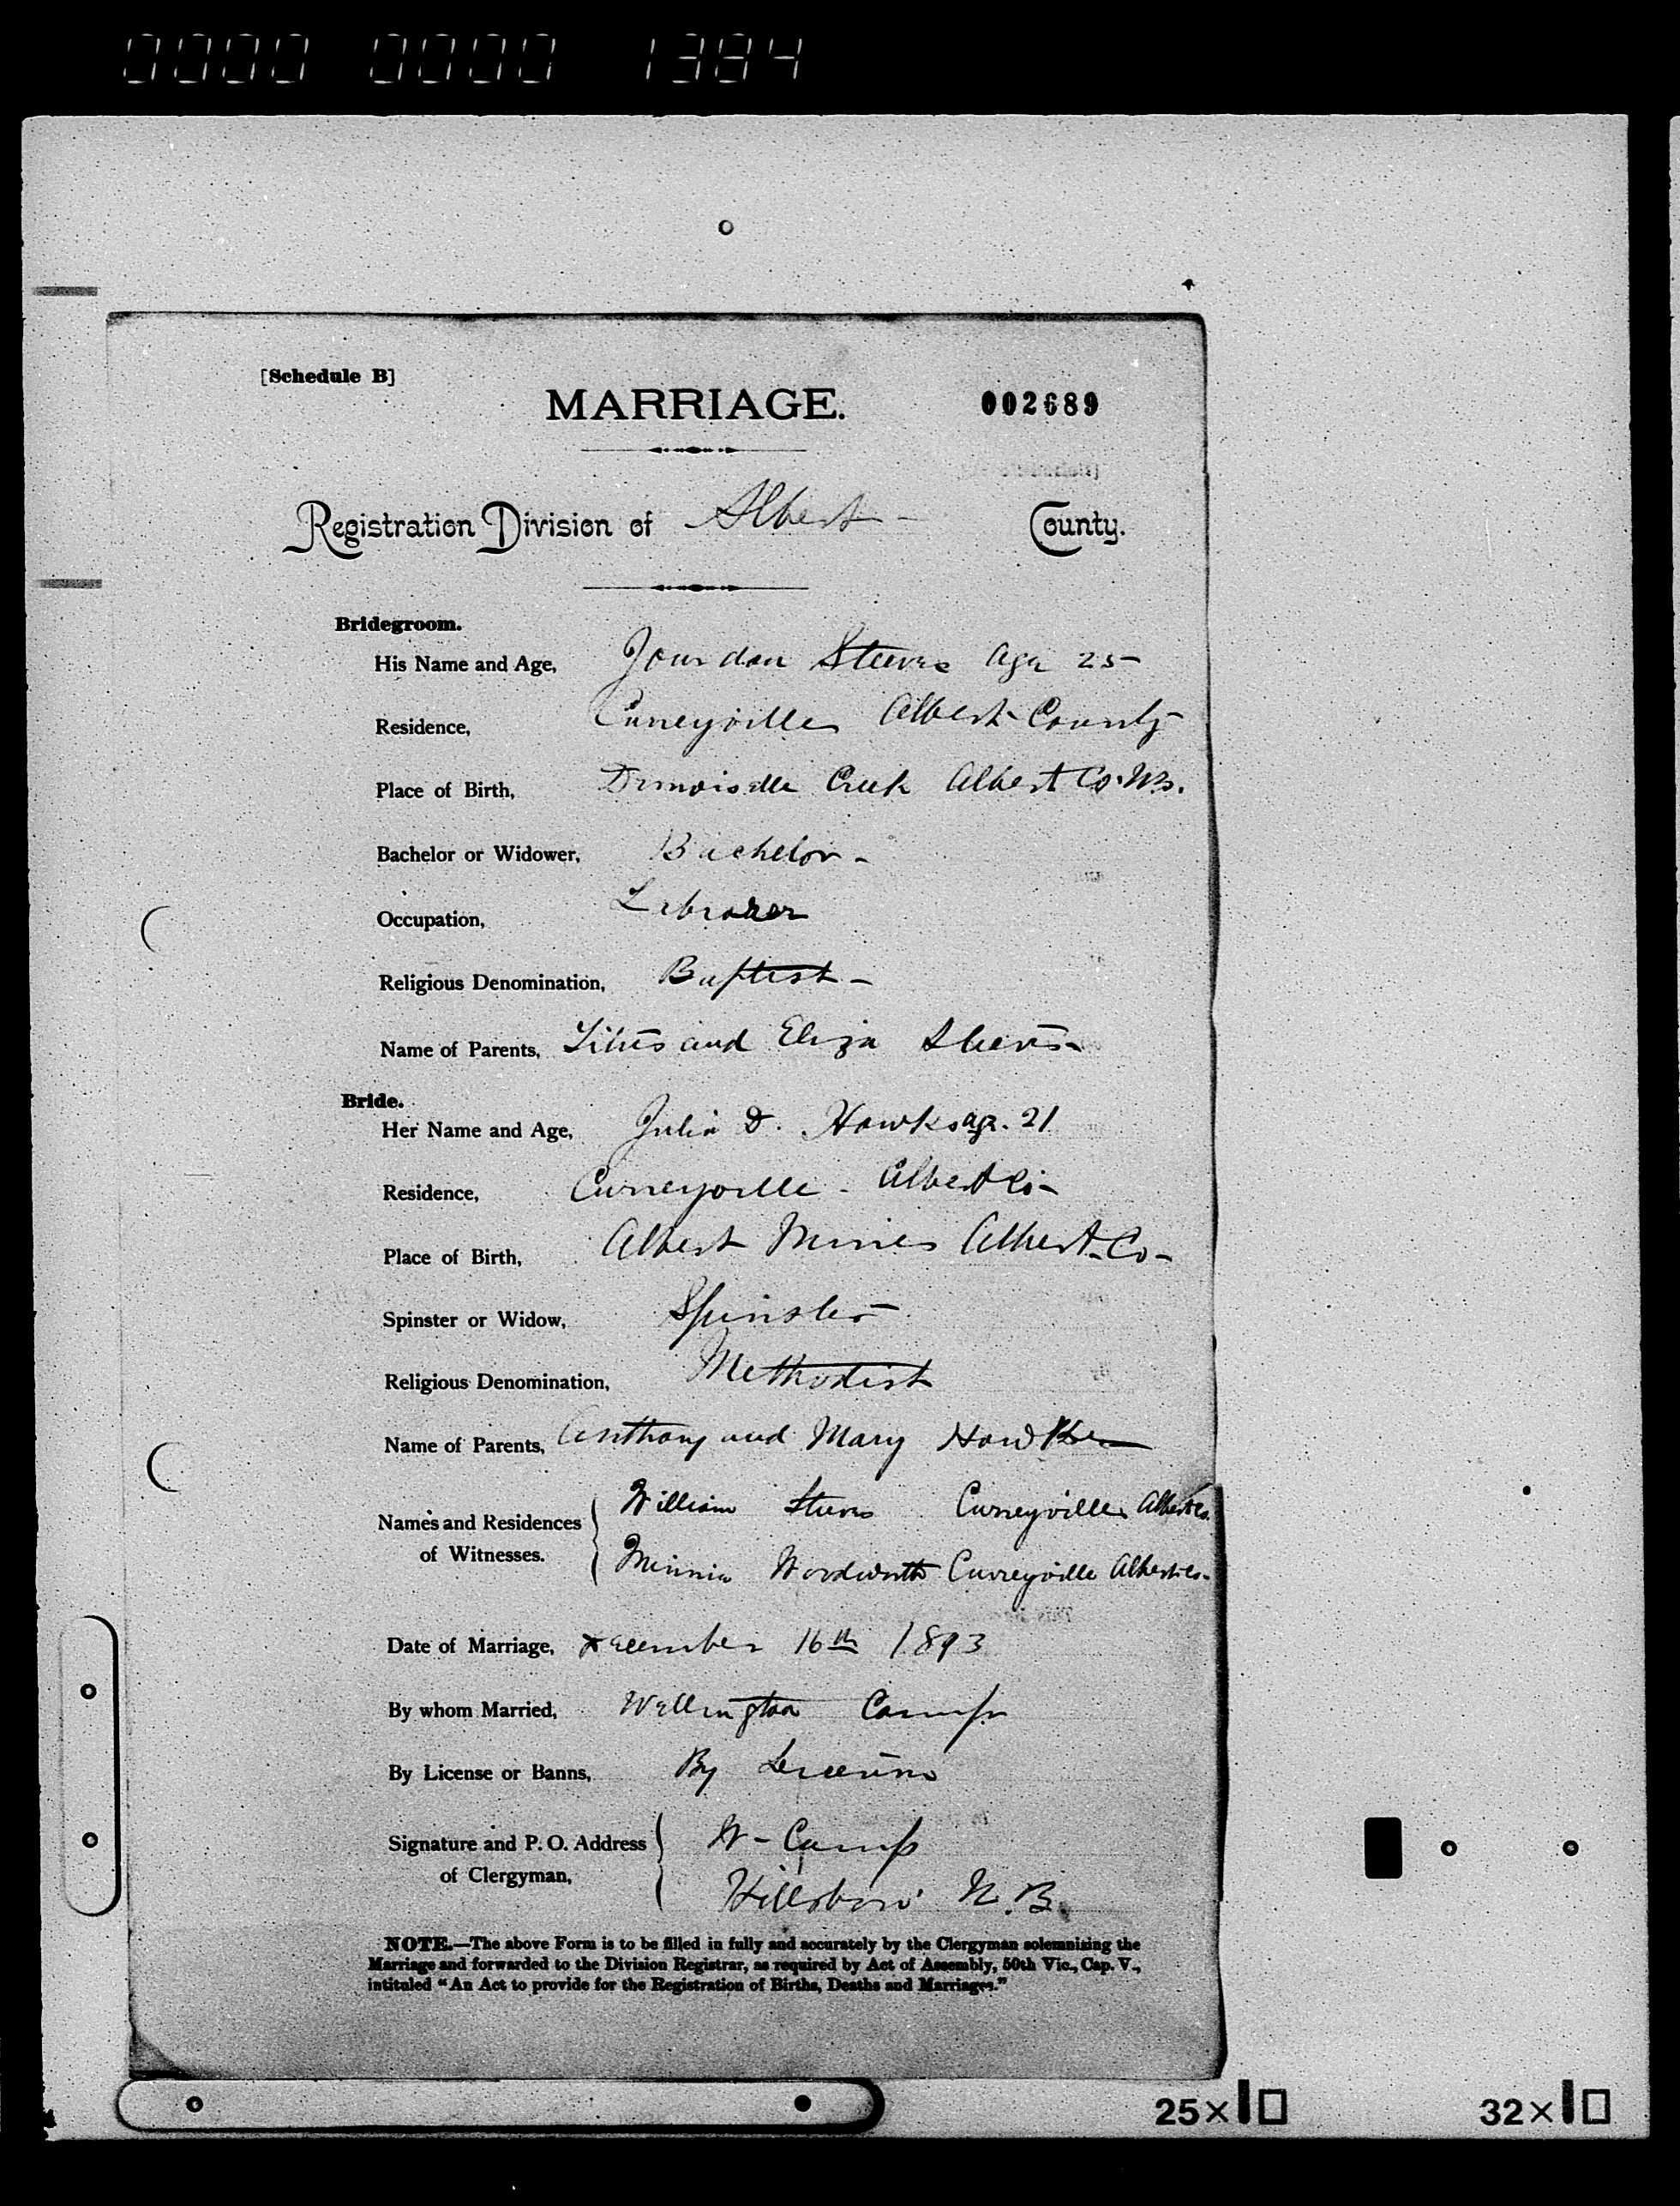 0000 0000 1384
[Schedule B]
MARRIAGE. 002689
Registration Division of Albert - County.
Bridegroom.
His Name and Age, Jourdan Steeves age 25
Residence, Curreyville Albert County
Place of Birth, Demoiselle Creek Albert Co. N.B.
Bachelor or Widower, Bachelor -
Occupation, Labrorer
Religious Denomination, Baptist -
Name of Parents, Titus and Eliza Steeves
Bride.
Her Name and Age, Julia D. Hawks age. 21
Residence, Curreyville - Albert Co-
Place of Birth, Albert Mines Albert Co-
Spinster or Widow, Spinster
Religious Denomination, Methodist
Name of Parents, Anthony and Mary
Names and Residences of Witnesses. William Steeves Curreyville Albert Co.
Minnie Woodworth Curreyville Albert Co.
Date of Marriage, December 16th 1893
By whom Married, Wellington Camp
By License or Banns, By License
Signature and P. O. Address of Clergyman, W - Camp
Hillsboro' N. B.
NOTE.—The above Form is to be filled in fully and accurately by the Clergyman solemnizing the
Marriage and forwarded to the Division Registrar, as required by Act of Assembly, 50th Vic., Cap. V.,
intituled "An Act to provide for the Registration of Births, Deaths and Marriages."
25× 32×